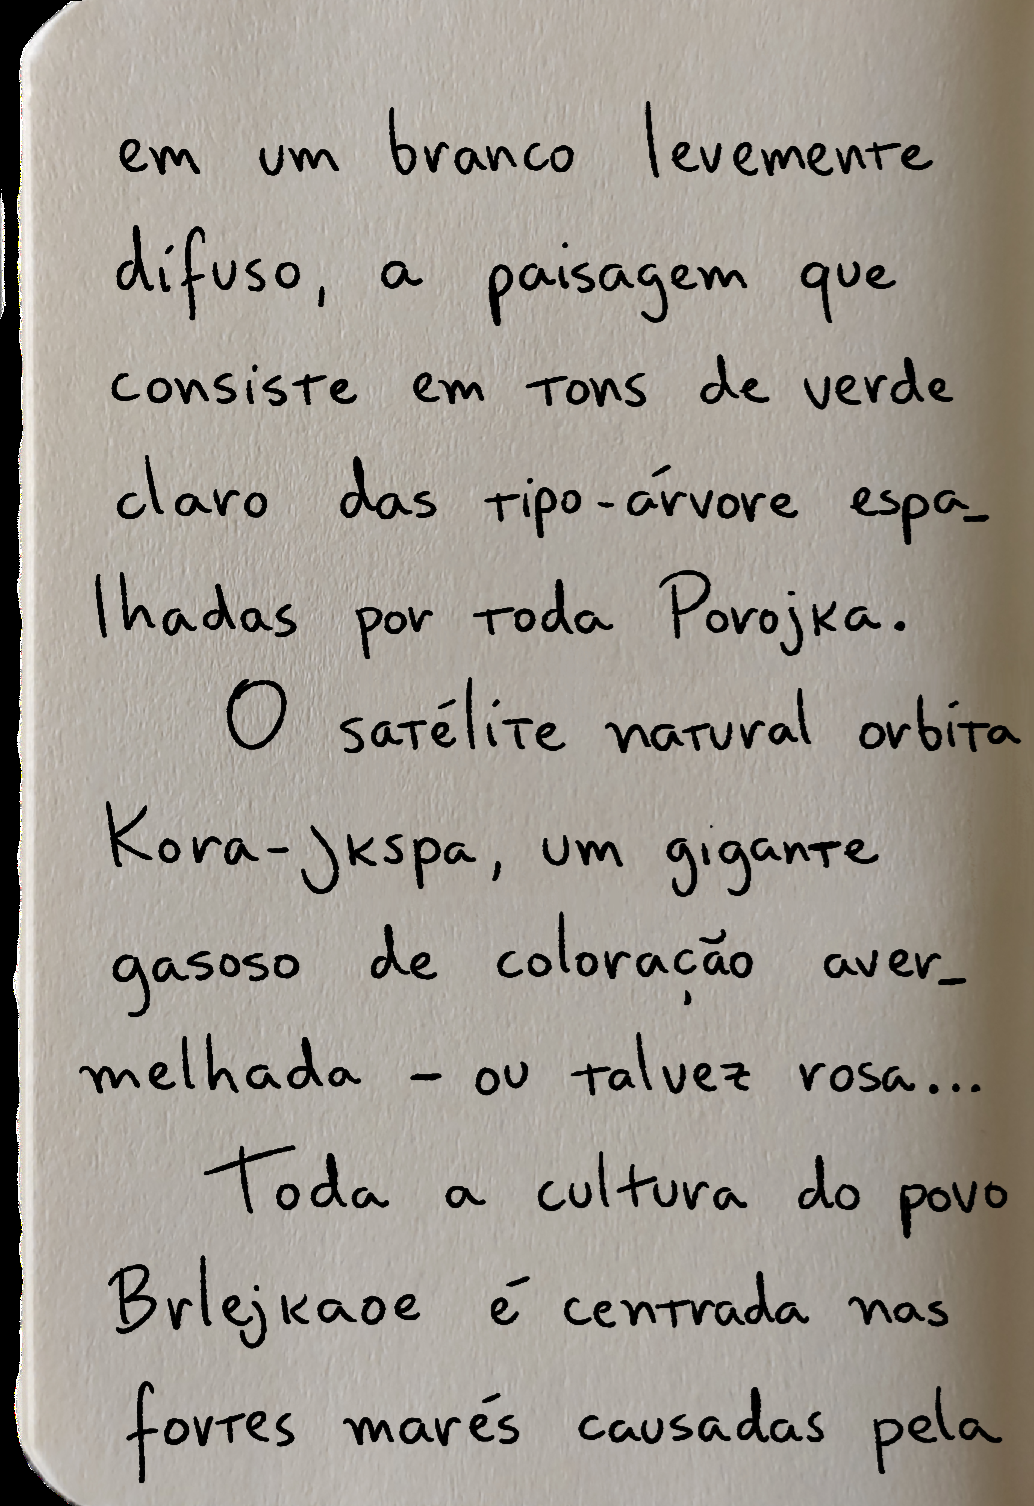 em um branco levemente
difuso, a paisagem que
consiste em tons de verde
claro das tipo-árvore espa-
lhadas por toda Povojka.
O satélite natural orbita
Kora-Jkspa, um gigante
gasoso de coloração aver-
melhada - ou talvez rosa...
Toda a cultura do povo
Brlejkaoe é centrada nas
fortes marés causadas pela